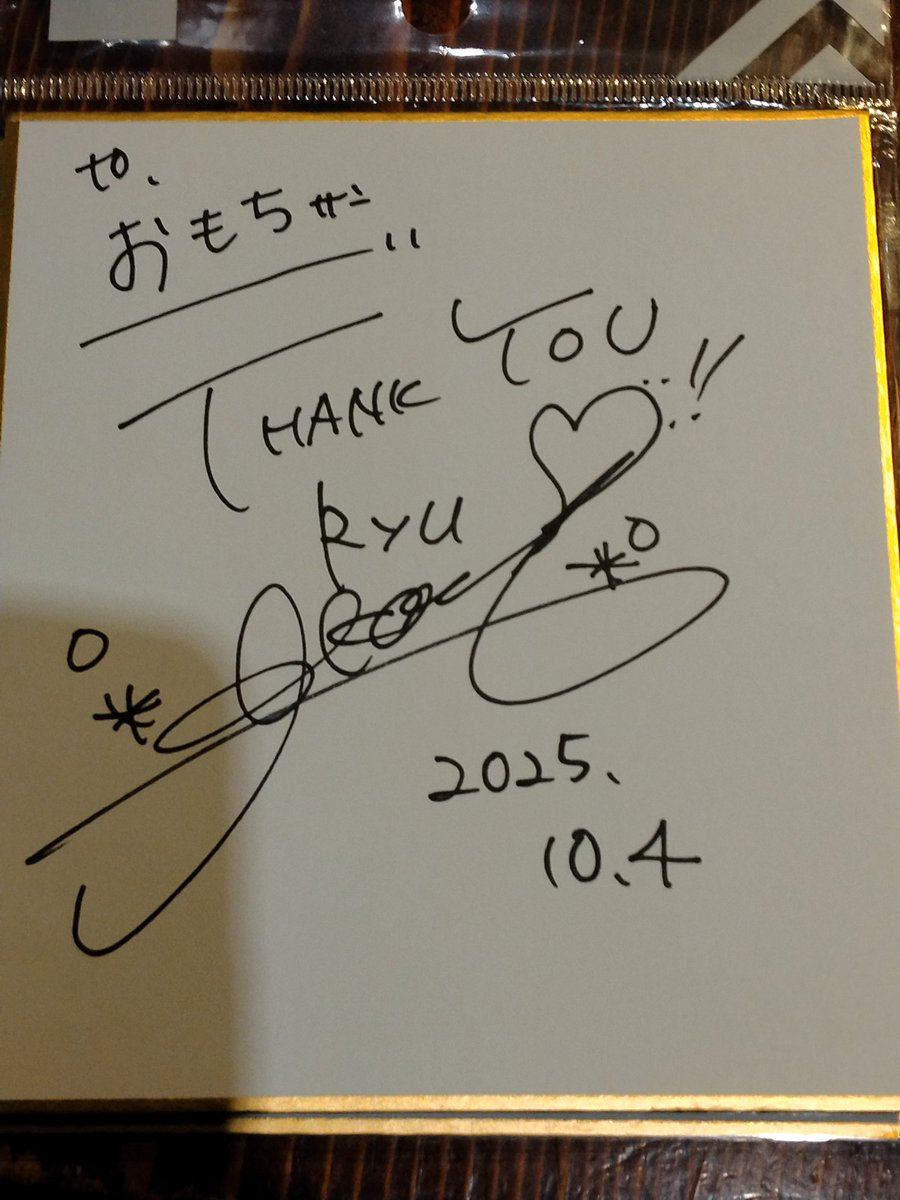 to.
おもちサン
THANK YOU!!
RYU
2025.
10.4